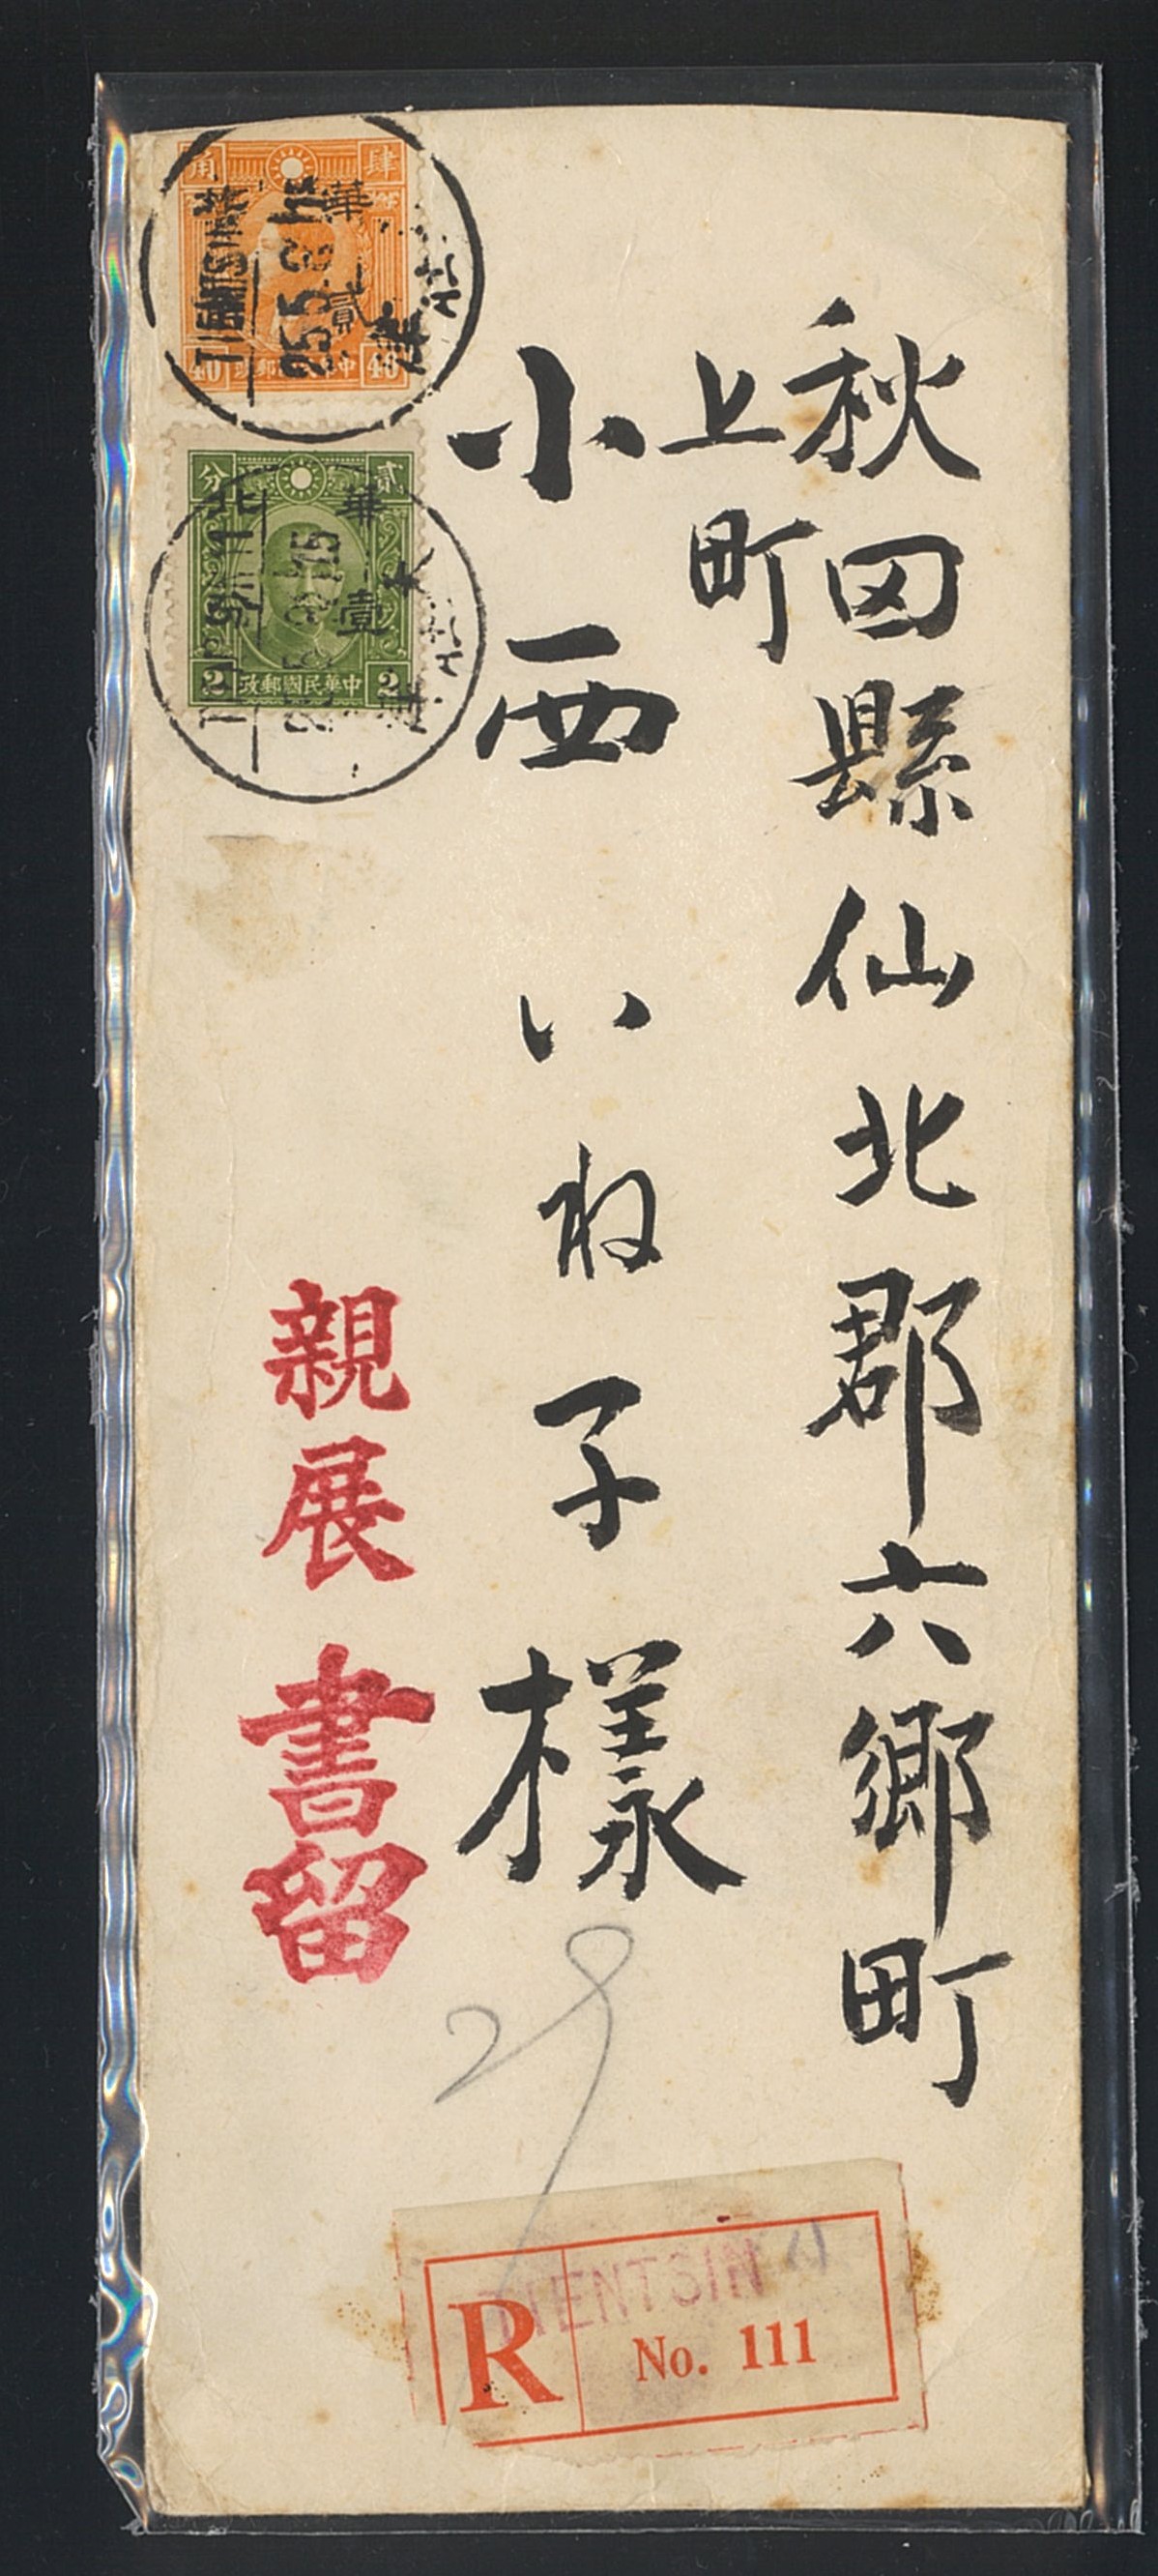 秋田縣仙北郡六郷町
上町
小西いね子様
親展
書留
肆
角
40
40
貳
分
中華民國郵政
2
2
TIENTSIN
華
貳
北
華
壹
29
TIENTSIN
R
No. 111